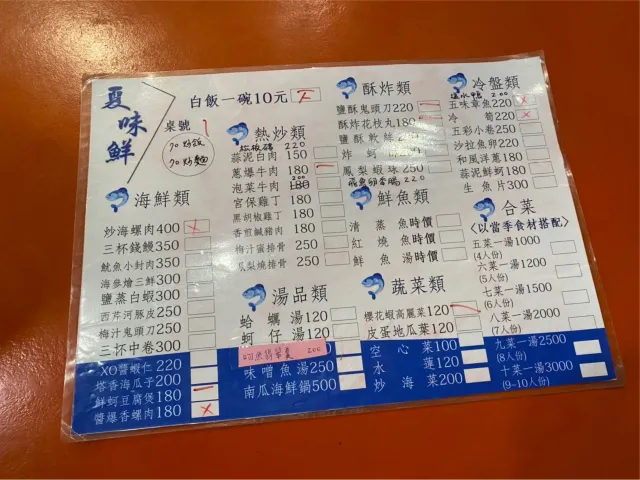 夏味鮮
白飯一碗10元
桌號 1
70 炒飯
70 炒麵
海鮮類
炒海螺肉400
三杯錢鰻350
魷魚小封肉350
海參燴三鮮300
鹽蒸白蝦300
西芹河豚皮250
梅汁鬼頭刀250
三杯中卷300
XO醬蝦仁 220
塔香海瓜子200
鮮蚵豆腐煲180
醬爆香螺肉180
熱炒類
220
蒜泥白肉 150
蔥爆牛肉 180
200
泡菜牛肉 180
宮保雞丁 180
黑胡椒雞丁 180
香煎鹹豬肉 180
梅汁蜜排骨 250
鳳梨燒排骨 250
湯品類
蛤蠣湯120
蚵仔湯120
200
味噌魚湯250
南瓜海鮮鍋500
酥炸類
鹽酥鬼頭刀220
酥炸花枝丸180
鹽酥軟絲
炸蚵
鳳梨蝦球250
飛魚卵香腸 220
鮮魚類
清蒸魚時價
紅燒魚時價
鮮魚湯時價
蔬菜類
櫻花蝦高麗菜120
皮蛋地瓜葉120
空心菜100
水蓮120
炒海菜200
冷盤類
200
五味章魚220
冷筍220
五彩小卷250
沙拉魚卵220
和風洋蔥180
蒜泥鮮蚵180
生魚片300
合菜
〈以當季食材搭配〉
五菜一湯1000
(4人份)
六菜一湯1200
(5人份)
七菜一湯1500
(6人份)
八菜一湯2000
(7人份)
九菜一湯2500
(8人份)
十菜一湯3000
(9~10人份)